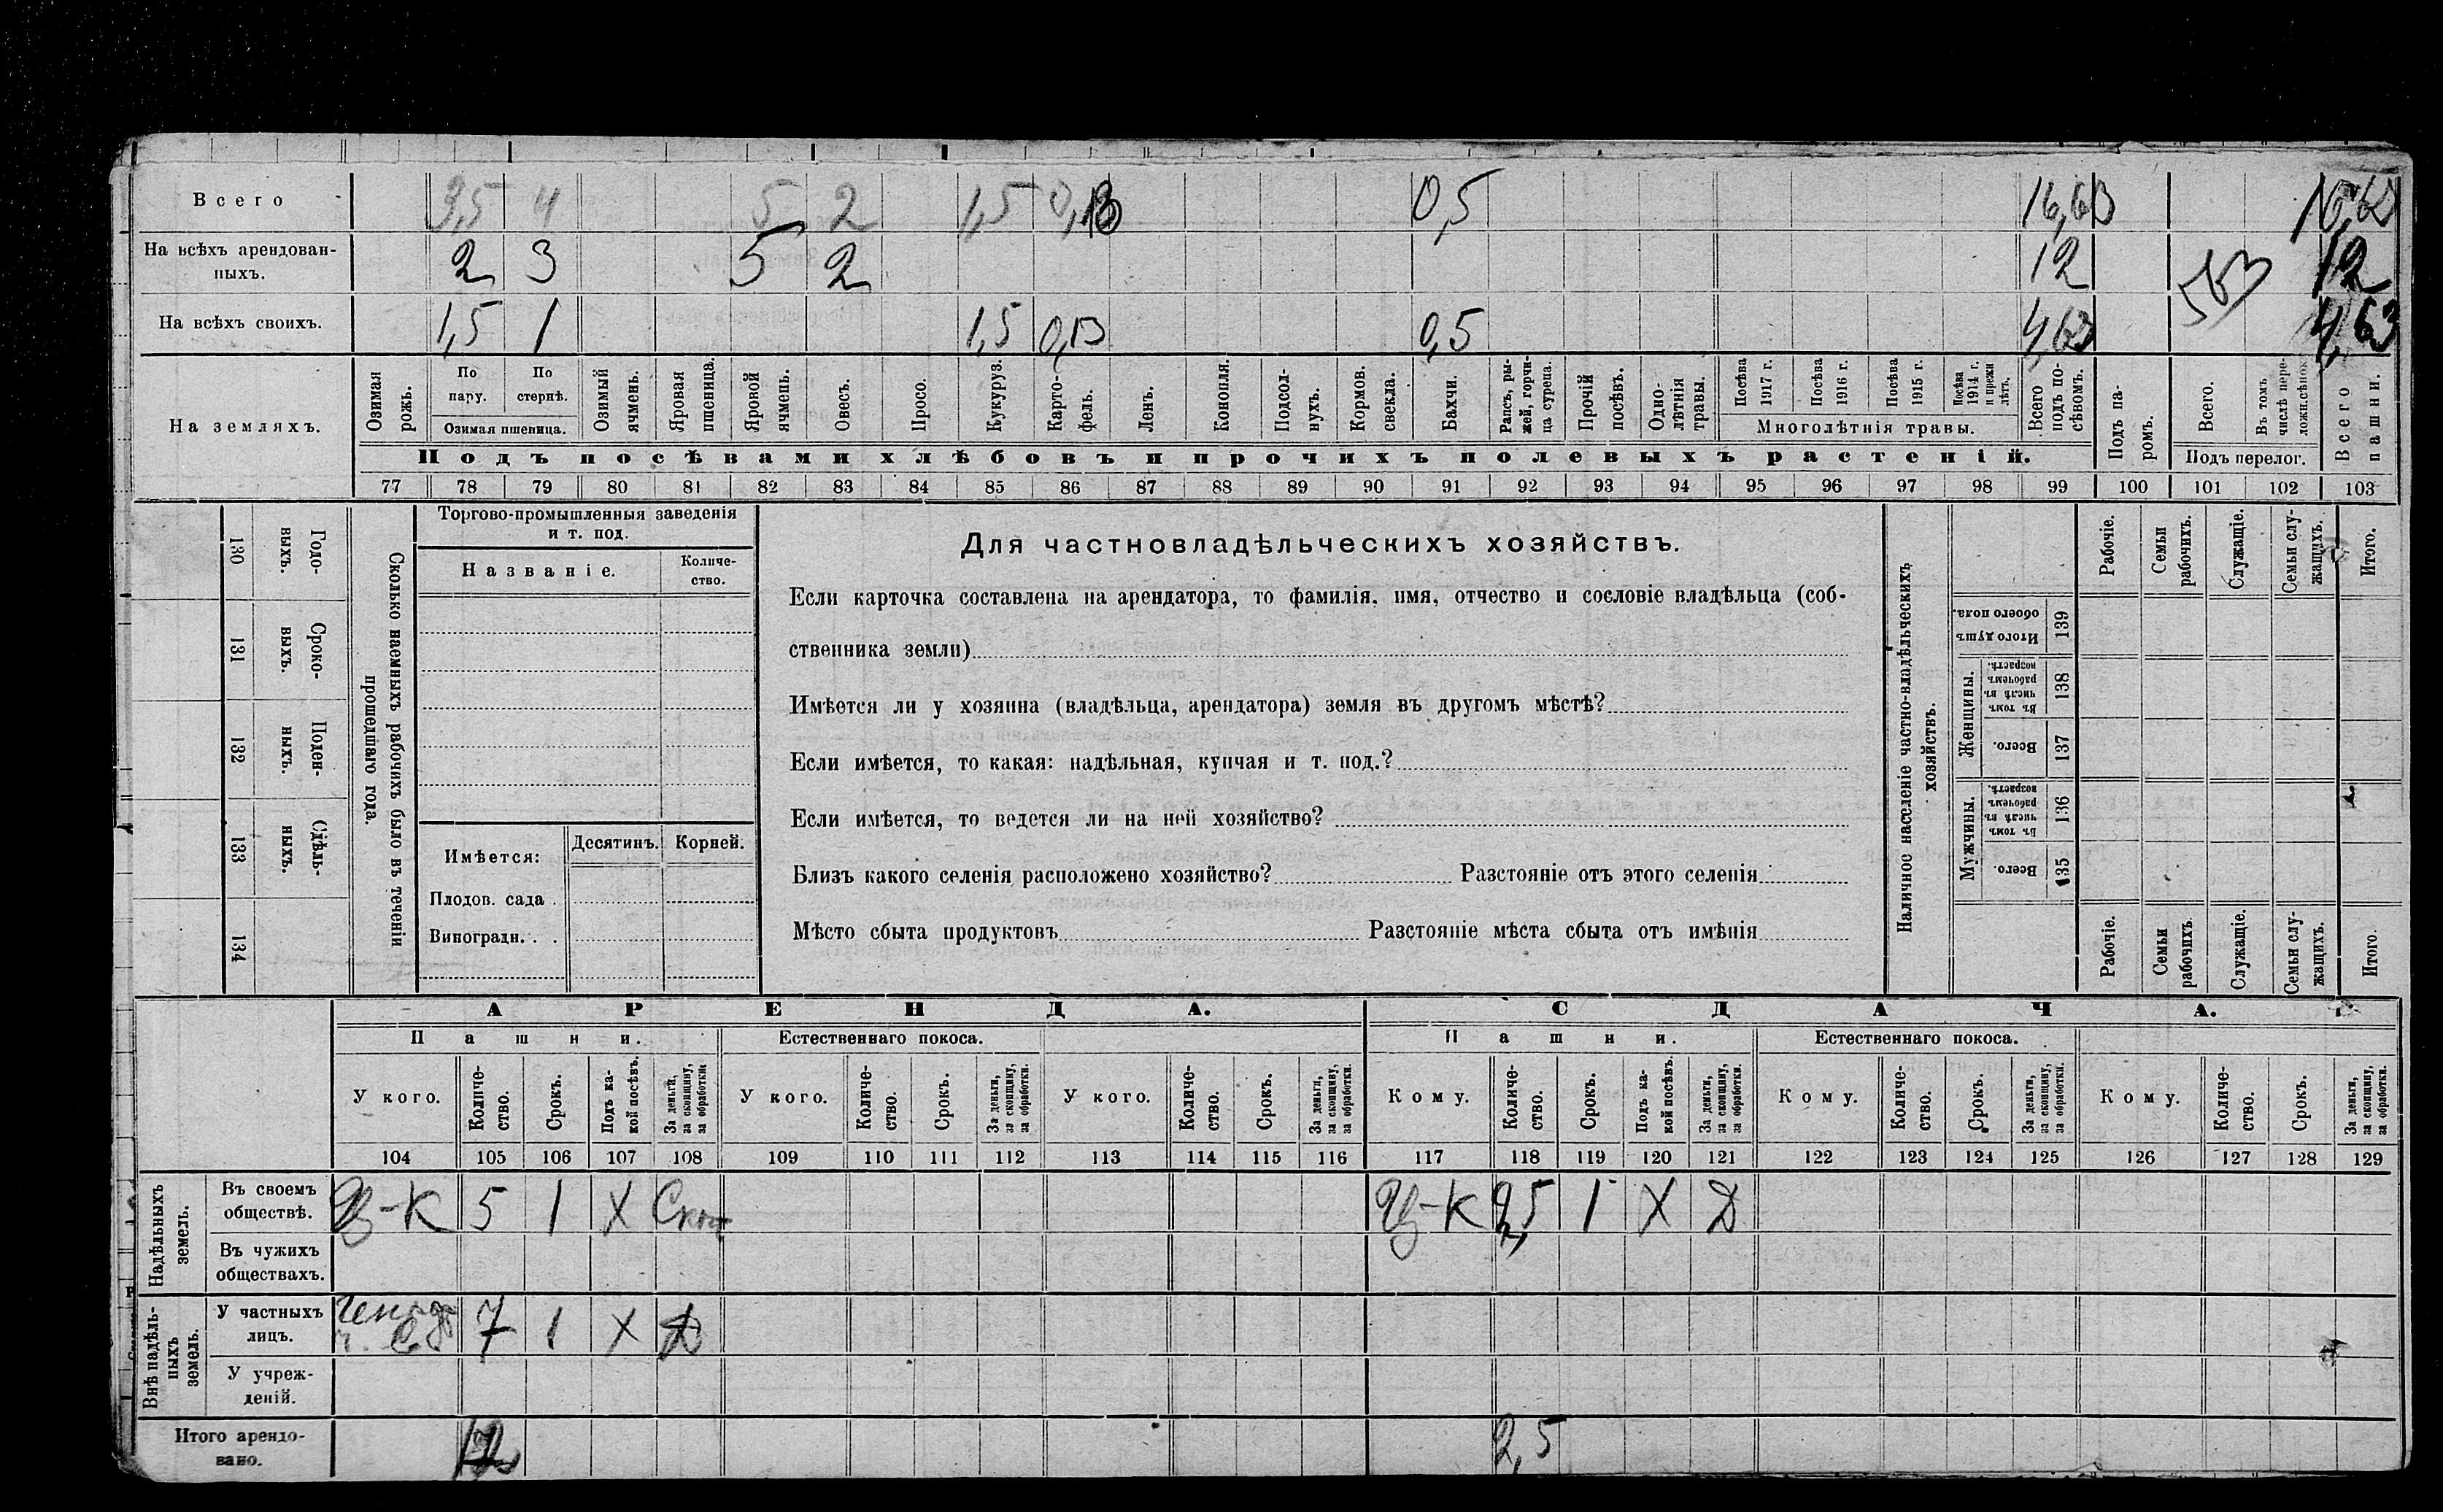 Всего 3,5 4 5 2 1,5 0,13 0,5 16,63 16,63
На всѣхъ арендован-
ныхъ. 2 3 5 2 12 12
На всѣхъ своихъ. 1,5 1 1,5 0,13 0,5 4,63 4,63
На земляхъ.
Озимая рожь.
По пару.
По стернѣ.
Озимая пшеница.
Озимый ячмень.
Яровая пшеница.
Яровой ячмень.
Овесъ.
Просо.
Кукуруз.
Карто-
фель.
Ленъ.
Конопля.
Подсол-
нухъ.
Кормов. свекла.
Бахчи.
Рапсъ, ры-
жей, горчи-
ца сурепа.
Прочій посѣвъ.
Одно-
лѣтнія травы.
Посѣва 1917 г.
Посѣва 1916 г.
Посѣва 1915 г.
Посѣва 1914 г. и прежн лѣтъ.
Многолѣтнія травы.
Всего подъ по-
сѣвомъ.
Подъ па-
ромъ.
Всего.
Въ томъ числѣ пере-
ложн.сѣнок
Подъ перелог.
Всего пашни.
Подъ посѣвами хлѣбовъ и прочихъ полевыхъ растеній.
77 78 79 80 81 82 83 84 85 86 87 88 89 90 91 92 93 94 95 96 97 98 99 100 101 102 103
Сколько наемныхъ рабочихъ было въ теченіи
прошедшаго года.
Годо-
выхъ.
130
Сроко-
выхъ.
131
Поден-
ныхъ.
132
Сдѣль-
ныхъ.
133
134
Торгово-промышленныя заведенія
и т. под.
Названіе.
Количе-
ство.
Имѣется:
Десятинъ. Корней.
Плодов. сада .
Виноградн. . .
Для частновладѣльческихъ хозяйствъ.
Если карточка составлена на арендатора, то фамилія, имя, отчество и сословіе владѣльца (соб-
ственника земли)
Имѣется ли у хозяина (владѣльца, арендатора) земля въ другомъ мѣстѣ?
Если имѣется, то какая: надѣльная, купчая и т. под.?
Если имѣется, то ведется ли на ней хозяйство?
Близъ какого селенія расположено хозяйство? Разстояніе отъ этого селенія
Мѣсто сбыта продуктовъ Разстояніе мѣста сбыта отъ имѣнія
Наличное населеніе частно-владѣльческихъ
хозяйствъ.
Рабочіе.
Семьи рабочихъ.
Служащіе.
Семьи слу-
жащихъ.
Итого.
Итого душъ обоего пола.
139
Женщины.
Въ томъ числѣ въ рабочемъ возрастѣ.
138
Всего.
137
Мужчины.
Въ томъ числѣ въ рабочемъ возрастѣ.
136
Всего.
135
Рабочіе.
Семьи рабочихъ
Служащіе.
Семьи слу-
жащихъ.
Итого.
АРЕНДА. СДАЧА.
Пашни. Естественнаго покоса. Пашни. Естественнаго покоса.
У кого.
Количе-
ство.
Срокъ.
Подъ ка-
кой посѣвъ.
За деньги, за скопщину, за обработки
У кого.
Количе-
ство.
Срокъ.
За деньги, за скопщину, за обработки.
У кого.
Количе-
ство.
Срокъ.
За деньги, за скопщину, за обработки.
Кому.
Количе-
ство.
Срокъ.
Подъ ка-
кой посѣвъ.
За деньги, за скопщину, за обработки.
Кому.
Количе-
ство.
Срокъ.
За деньги, за скопщину, за обработки.
Кому.
Количе-
ство.
Срокъ.
За деньги, за скопщину, за обработки.
104 105 106 107 108 109 110 111 112 113 114 115 116 117 118 119 120 121 122 123 124 125 126 127 128 129
Надѣльныхъ земель.
Въ своемъ
обществѣ. 5 1 Х Скоп 2,5 1 Х Д
Въ чужихъ
обществахъ.
Внѣ надѣль-
ныхъ земель.
У частныхъ
лицъ. 7 1 Х Д
У учреж-
деній.
Итого арендо-
вано. 12 2,5